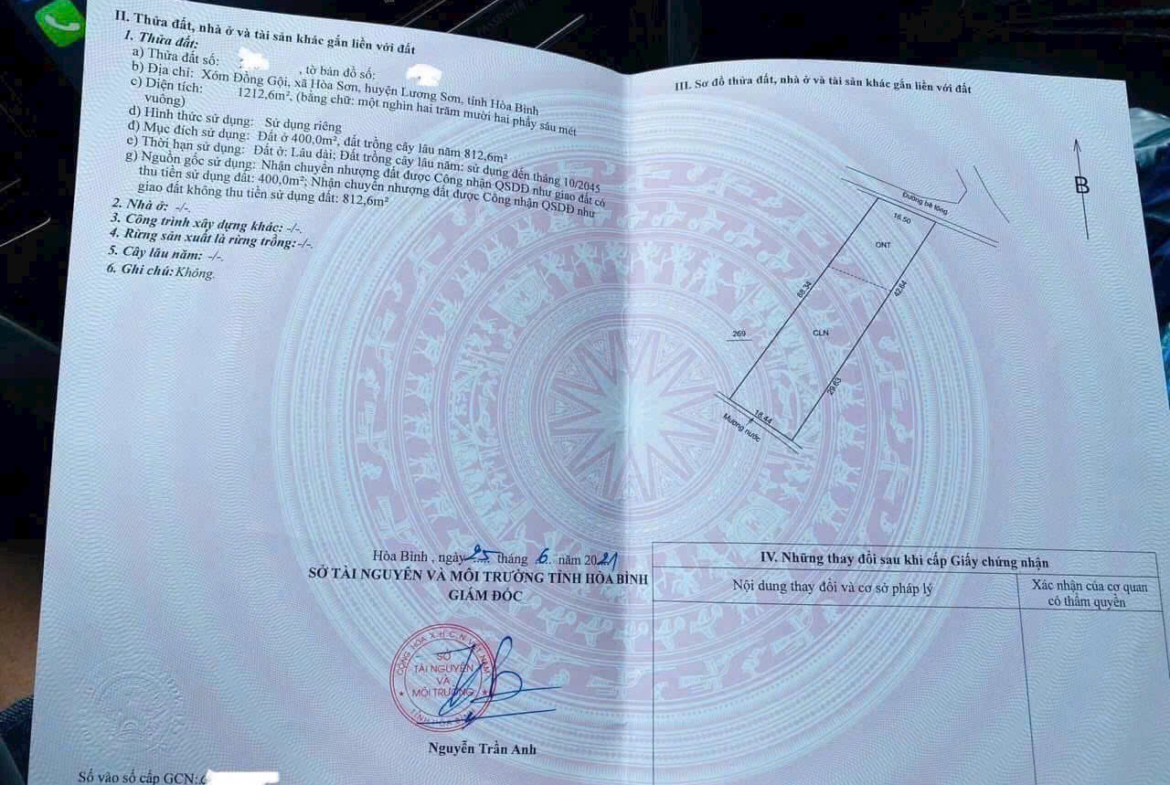 II. Thửa đất, nhà ở và tài sản khác gắn liền với đất
1. Thửa đất:
a) Thửa đất số: , tờ bản đồ số:
b) Địa chỉ: Xóm Đồng Gội, xã Hòa Sơn, huyện Lương Sơn, tỉnh Hòa Bình
c) Diện tích: 1212,6m². (bằng chữ: một nghìn hai trăm mười hai phẩy sáu mét
vuông)
d) Hình thức sử dụng: Sử dụng riêng
đ) Mục đích sử dụng: Đất ở 400,0m², đất trồng cây lâu năm 812,6m²
e) Thời hạn sử dụng: Đất ở: Lâu dài; Đất trồng cây lâu năm: sử dụng đến tháng 10/2045
g) Nguồn gốc sử dụng: Nhận chuyển nhượng đất được Công nhận QSDĐ như giao đất có
thu tiền sử dụng đất: 400,0m²; Nhận chuyển nhượng đất được Công nhận QSDĐ như
giao đất không thu tiền sử dụng đất: 812,6m²
2. Nhà ở: -/-.
3. Công trình xây dựng khác: -/-.
4. Rừng sản xuất là rừng trồng: -/-.
5. Cây lâu năm: -/-.
6. Ghi chú: Không.
Hòa Bình , ngày 25 tháng 6 năm 2021
SỞ TÀI NGUYÊN VÀ MÔI TRƯỜNG TỈNH HÒA BÌNH
GIÁM ĐỐC
CỘNG HÒA X.H.C.N VIỆT NAM
SỞ
TÀI NGUYÊN
VÀ
MÔI TRƯỜNG
TỈNH HÒA BÌNH
Nguyễn Trần Anh
Số vào sổ cấp GCN:
III. Sơ đồ thửa đất, nhà ở và tài sản khác gắn liền với đất
B
Đường bê tông
16.50
ONT
68.34
42.64
269
CLN
29.63
16.44
Mương nước
IV. Những thay đổi sau khi cấp Giấy chứng nhận
Nội dung thay đổi và cơ sở pháp lý
Xác nhận của cơ quan
có thẩm quyền